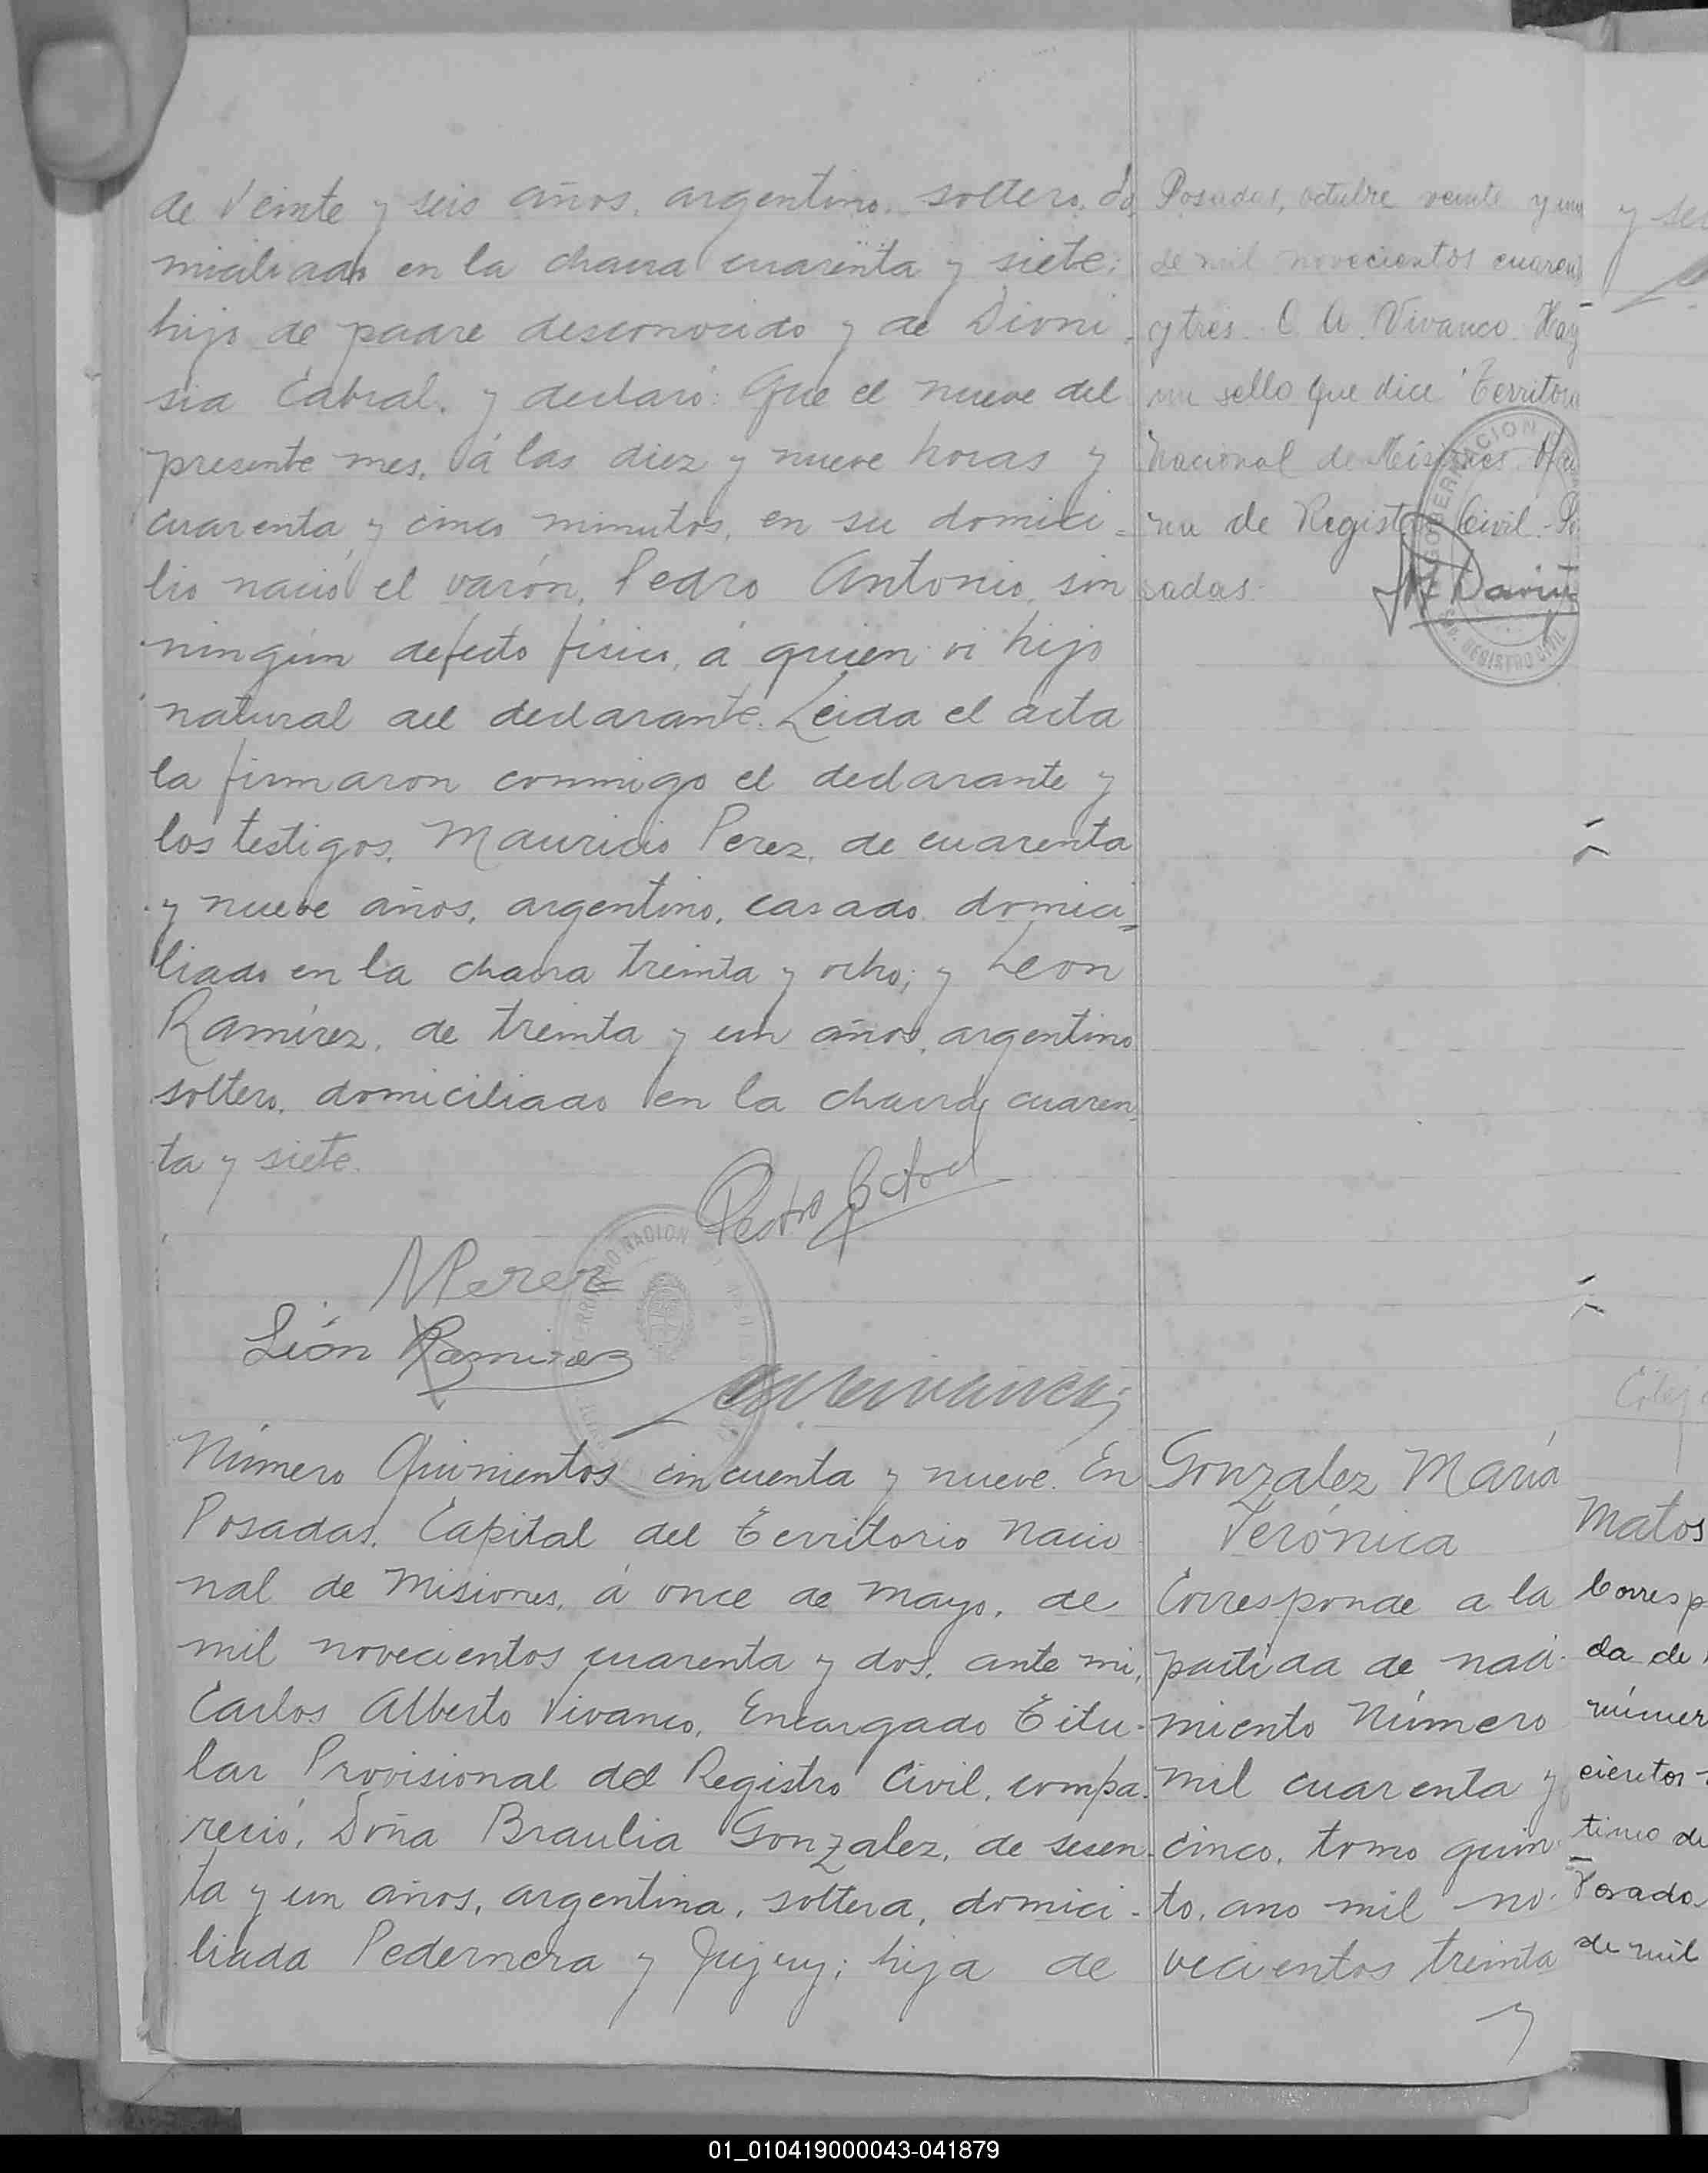 de veinte y seis años, argentino, soltero, do
miciliado en la chacra cuarenta y siete;
hijo de padre desconocido y de Dioni-
sia Cabral, y declaró: Que el nueve del
presente mes, á las diez y nueve horas y
cuarenta y cinco minutos, en su domici=
lio nació el varón, Pedro Antonio, sin
ningún defecto físico, á quien vi hijo
natural del declarante. Leida el acta
la firmaron conmigo el declarante y
los testigos, Mauricio Perez, de cuarenta
y nueve años, argentino, casado, domici=
liado en la chacra treinta y ocho; y Leon
Ramírez, de treinta y un años, argentino
soltero, domiciliado en la chacra cuaren
ta y siete.
Pedro
MPerez
León Ramirez
Posadas, octubre veinte y uno
de mil novecientos cuarent
y tres. C. A. Vivanco. Hay
un sello que dice "Territorio
Nacional de Misiones. Ofici
na de Registro Civil - Po
sadas.
REGISTRO CIVIL
Número Quinientos cincuenta y nueve. En
Posadas, Capital del Territorio Nacio
nal de Misiones, á once de Mayo, de
mil novecientos cuarenta y dos, ante mi,
Carlos Alberto Vivanco, Encargado Titu-
lar Provisional del Registro Civil, compa-
reció, Doña Braulia Gonzalez, de sesen-
ta y un años, argentina, soltera, domici-
liada Pedernera y Jujuy; hija de
Gonzalez María
Verónica
Corresponde a la
partida de naci-
miento Número
mil cuarenta y
cinco, tomo quin-
to, ano mil no-
vecientos treinta
y
y se
Matos
Corresp
da de
númer
cientos
timo de
Posada
de mil
01_010419000043-041879